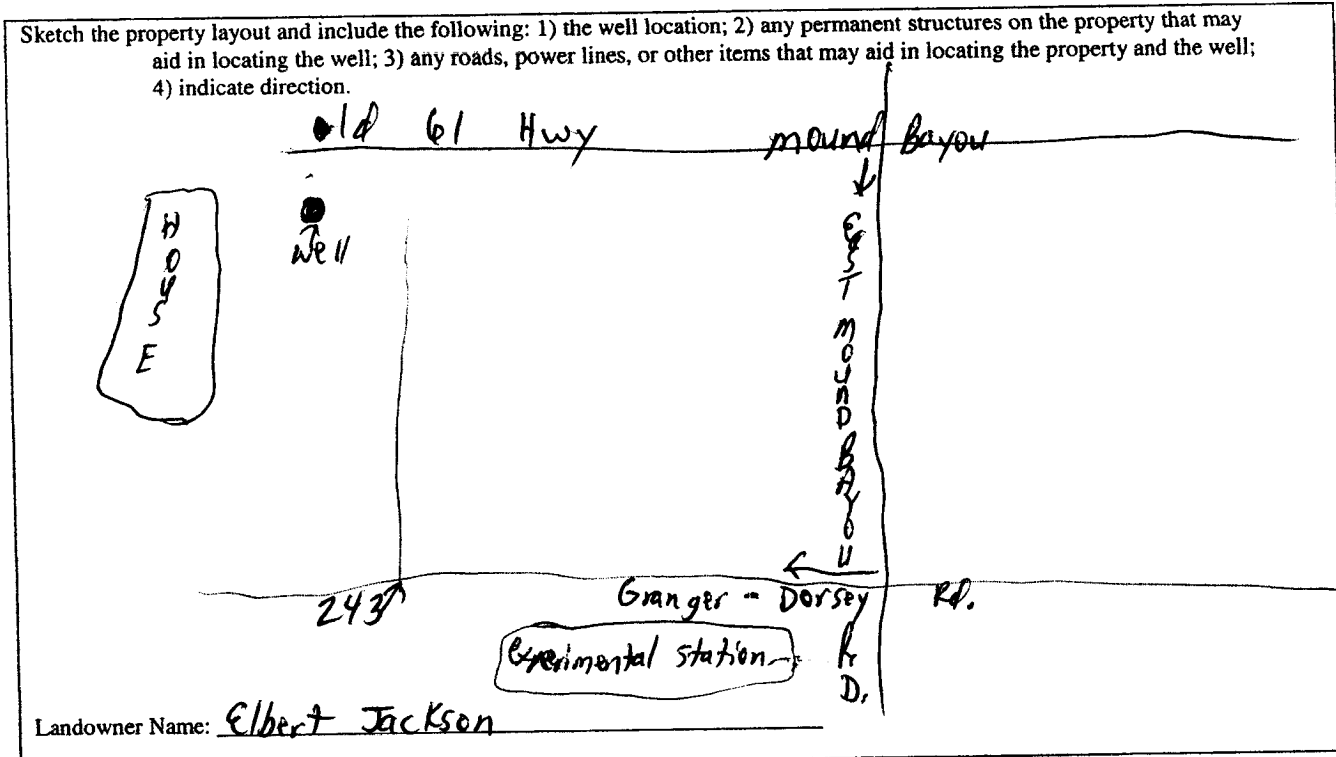 Sketch the property layout and include the following: 1) the well location; 2) any permanent structures on the property that may
aid in locating the well; 3) any roads, power lines, or other items that may aid in locating the property and the well;
4) indicate direction.
old 61 Hwy mound Bayou
HOUSE
Well
EAST MOUND BAYOU RD.
243
Granger - Dorsey Rd.
Experimental station
Landowner Name: Elbert Jackson